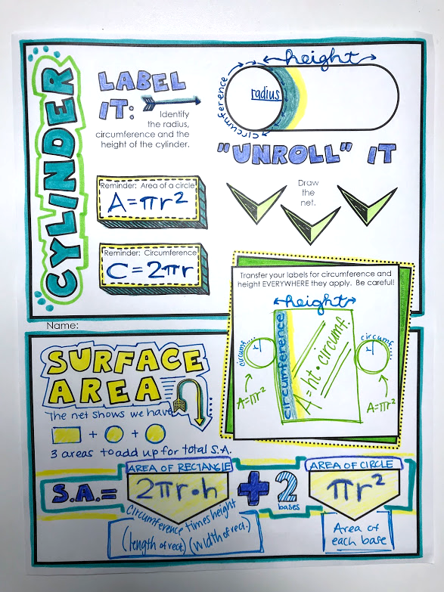 CYLINDER
LABEL
IT:
Identify
the radius,
circumference and the
height of the cylinder.
height
radius
circumference
"UNROLL" IT
Draw
the
net.
Reminder: Area of a circle
A=πr²
Reminder: Circumference
C=2πr
Transfer your labels for circumference and
height EVERYWHERE they apply. Be careful!
height
circumference
A=ht·circumf.
circumf.
circumf.
A=πr²
A=πr²
Name:
SURFACE
AREA
The net shows we have
+ +
3 areas to add up for total S.A.
AREA OF RECTANGLE
AREA OF CIRCLE
S.A.= 2πr·h + 2 πr²
bases
Circumference times height
(length of rect.) (width of rect.)
Area of
each base